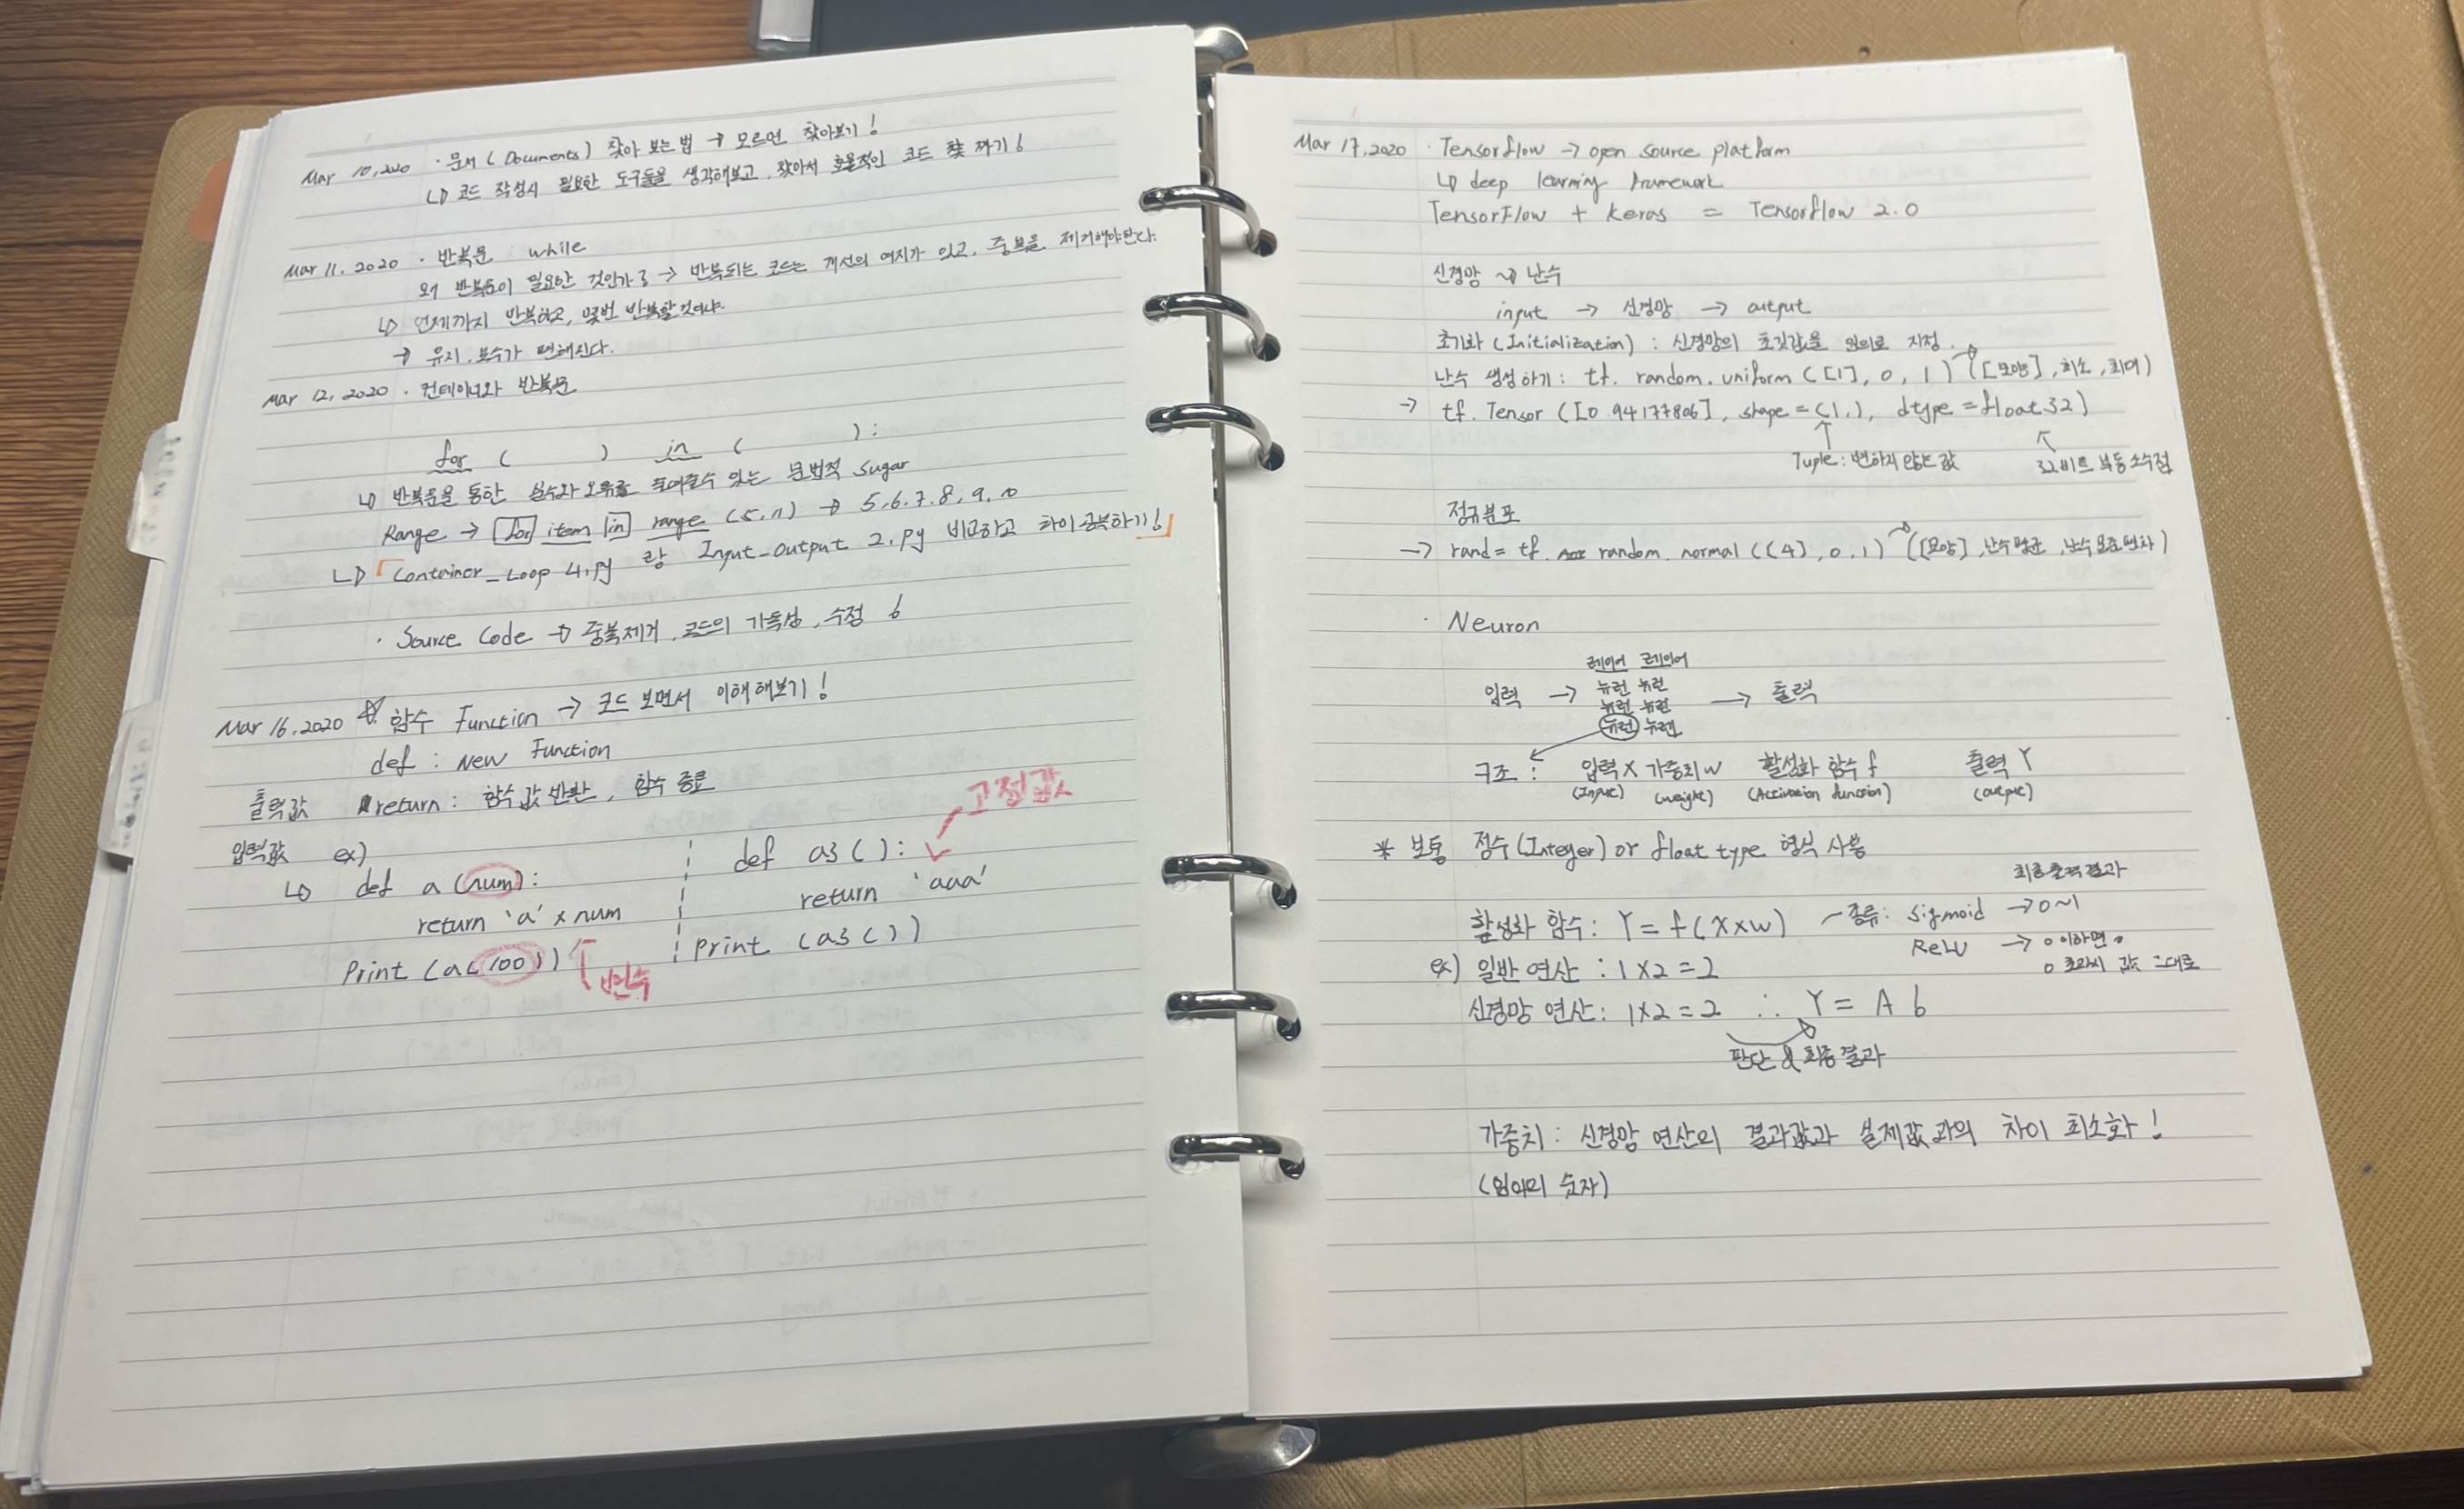 Mar 10, 2020 · 문서 (Documents) 찾아 보는 법 → 모르면 찾아보기!
↳ 코드 작성시 필요한 도구들을 생각해보고, 찾아서 효율적인 코드 짜기!
Mar 11. 2020 · 반복문 while
왜 반복문이 필요한 것인가? → 반복되는 코드는 개선의 여지가 있고, 중복을 제거해야한다.
↳ 언제까지 반복하고, 몇번 반복할것이냐.
→ 유지. 보수가 편해진다.
Mar 12, 2020 · 컨테이너와 반복문
for ( ) in ( ):
↳ 반복문을 통한 실수와 오류를 줄여줄수 있는 문법적 sugar
Range → for item in range (5,11) → 5,6,7,8,9,10
↳ 「Container_Loop 4.py 랑 Input_output 2.py 비교하고 차이 공부하기!」
· Source Code → 중복제거, 코드의 가독성, 수정
Mar 16, 2020 함수 Function → 코드 보면서 이해해보기!
def : New Function
출력값 return : 함수값 반환, 함수 종료
고정값
입력값 ex)
↳ def a (num):
return 'a' x num
Print (a(100))
변수
def a3 ( ):
return 'aaa'
Print (a3 ( ))
Mar 17, 2020 · Tensorflow → open source platform
↳ deep learning framework
TensorFlow + Keras = Tensorflow 2.0
신경망 → 난수
input → 신경망 → output
초기화 (Initialization) : 신경망의 초깃값을 지정.
난수 생성하기 : tf. random. uniform ([1], 0, 1) ([모양], 최소, 최대)
→ tf. Tensor ([0.94177806], shape = (1,), dtype = float32)
Tuple : 변하지 않는 값
32비트 부동소수점
정규분포
→ rand = tf. random. normal ([4], 0, 1) ([모양], 난수평균, 난수표준편차)
· Neuron
레이어 레이어
뉴런 뉴런
입력 → 뉴런 뉴런 → 출력
뉴런 뉴런
구조 : 입력 X 가중치 w 활성화 함수 f 출력 Y
(Input) (weight) (Activation function) (output)
* 보통 정수 (Integer) or float type 형식 사용
최종출력결과
활성화 함수 : Y = f (X x w) - 종류 : Sigmoid → 0~1
ReLU → 0 이하면 0
0 초과시 값 그대로
ex) 일반 연산 : 1 x 2 = 2
신경망 연산 : 1 x 2 = 2 ∴ Y = A
판단 & 최종결과
가중치 : 신경망 연산의 결과값과 실제값과의 차이 최소화!
(임의의 숫자)